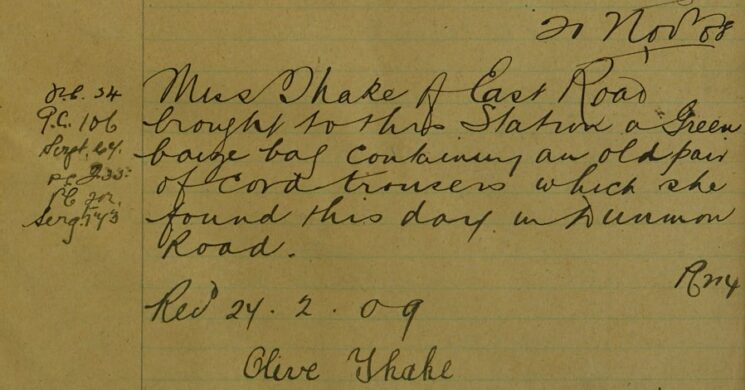 Nov 08
P.C. 34
P.C. 106
Sergt. 64.
P.C.
P.C.
Serg. 143
Miss Thake of East Road
brought to this Station a Green
baize bag containing an old pair
of cord trousers which she
found this day in
Road.
Recd 24. 2. 09
Olive Thake